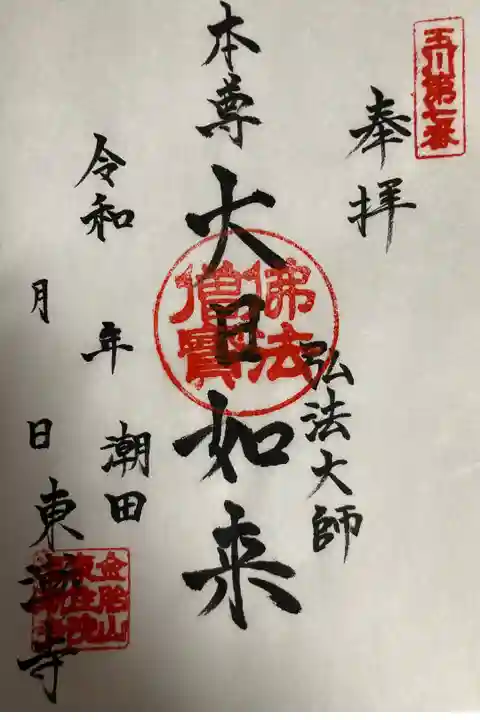 玉川第七番
奉拝
弘法大師
本尊
大日如来
佛法僧寳
令和
年
月
日
潮田
東漸寺
金胎山